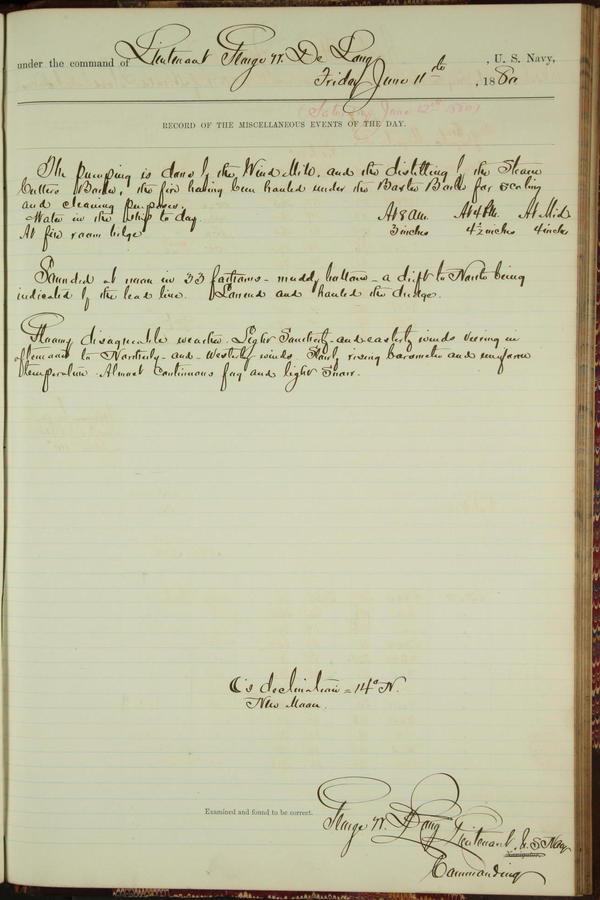 under the command of Lieutenant George W. De Long, U. S. Navy,
Friday June 11th, 1880
(Saturday June 12th 1880)
RECORD OF THE MISCELLANEOUS EVENTS OF THE DAY.
The pumping is done by the Wind Mill, and the distilling by the Steam
Cutters Boiler, the fire having been hauled under the Baxter Boiler for scaling
and cleaning purposes.
Water in the ship to day. At 8 AM. At 4 P.M. At Mid
At fire room bilge 3 inches 4½ inches 4 inches
Sounded at noon in 33 fathoms - muddy bottom - a drift to North being
indicated by the lead line. Lowered and hauled the dredge.
Gloomy disagreeable weather. Light Southerly and easterly winds veering in
afternoon to Northerly - and - Westerly winds. Slowly rising barometer and uniform
temperature. Almost continuous fog and light Snow.
☾'s declination = 14° N.
New Moon.
Examined and found to be correct.
George W. De Long Lieutenant, U.S. Navy
Navigator.
Commanding